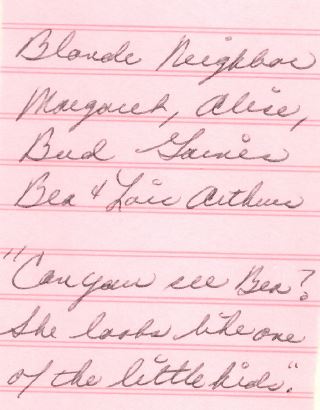 Blonde Neighbor
Margaret, Alice,
Bud Gaines
Bea & Lois Arthur
"Can you see Bea?
She looks like one
of the little kids".